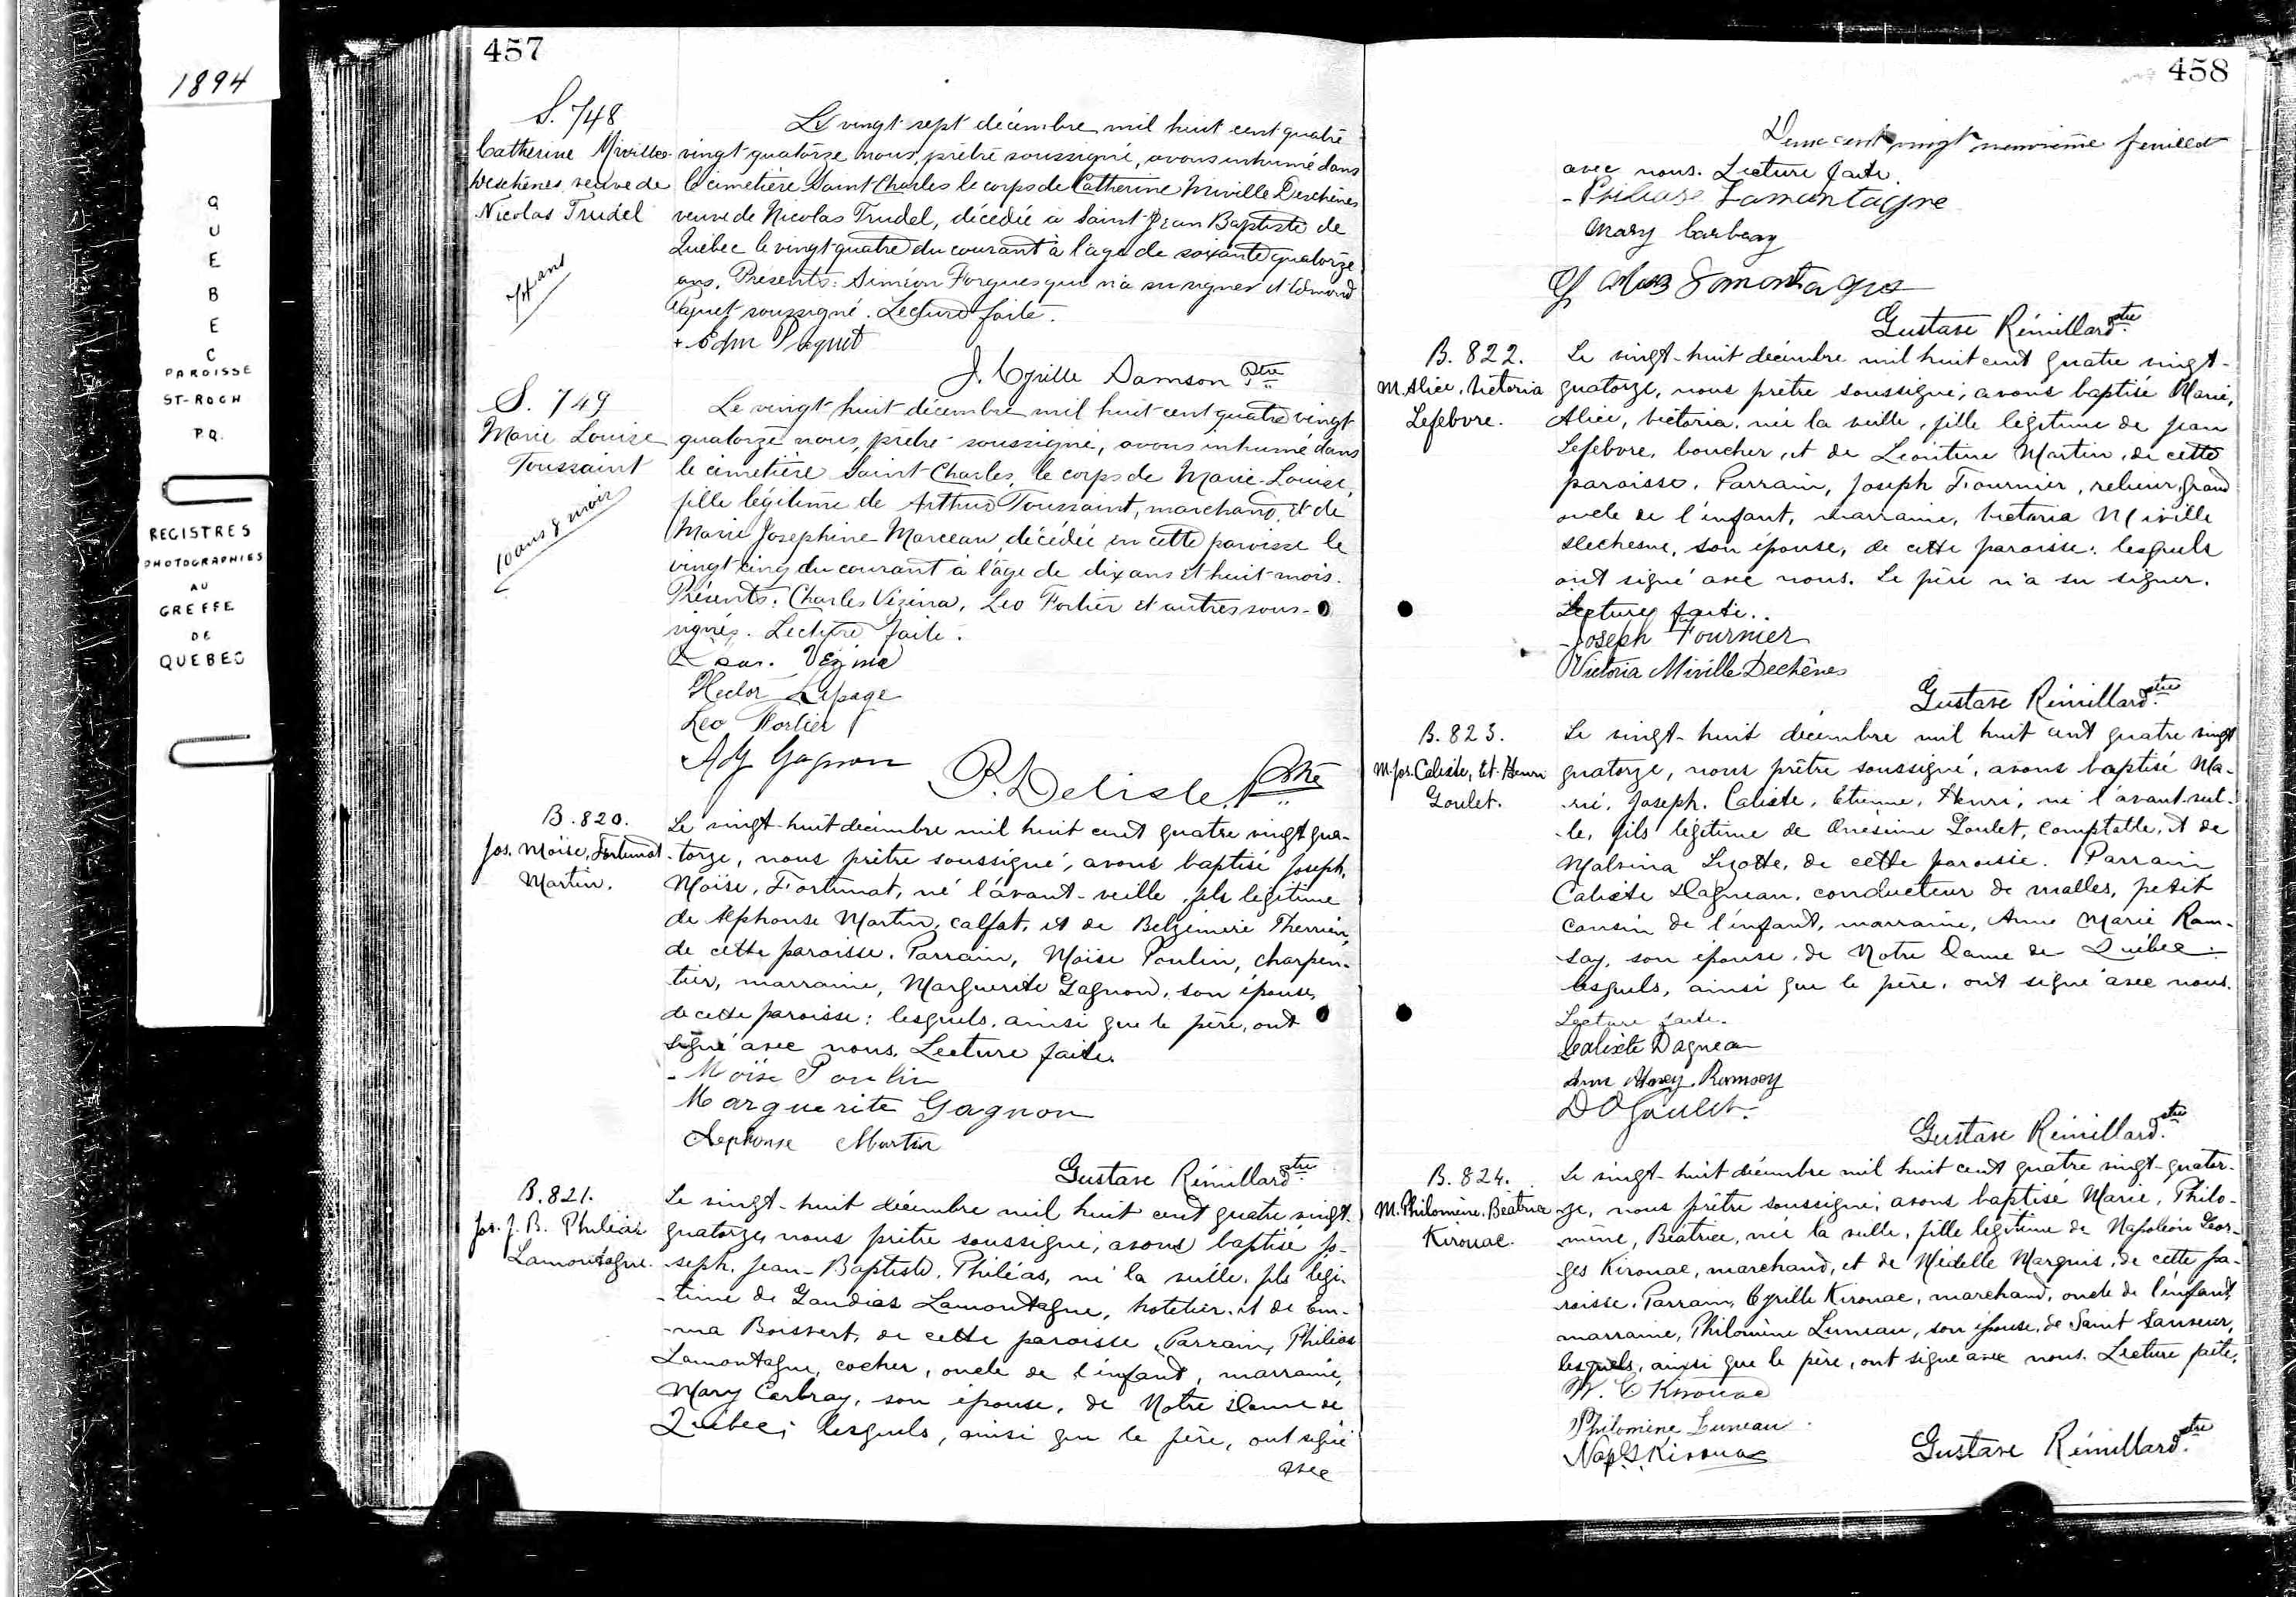 1894
QUEBEC
PAROISSE
ST-ROCH
P.Q.
REGISTRES
PHOTOGRAPHIES
AU
GREFFE
DE
QUEBEC
457
S. 748
Catherine Miville
Deschênes veuve de
Nicolas Trudel
74 ans
Le vingt sept décembre mil huit cent quatre
vingt quatorze nous, prêtre soussigné, avons inhumé dans
le cimetière Saint Charles le corps de Catherine Miville Deschênes
veuve de Nicolas Trudel, décédée à Saint Jean Baptiste de
Québec le vingt quatre du courant à l'âge de soixante quatorze
ans. Présents: Siméon Forgues qui n'a su signer et Edmond
Paquet soussigné. Lecture faite.
+ Edm Paquet
J. Cyrille Damson Ptre
S. 749
Marie Louise
Toussaint
10 ans 8 mois
Le vingt huit décembre mil huit cent quatre vingt
quatorze nous, prêtre soussigné, avons inhumé dans
le cimetière Saint Charles, le corps de Marie-Louise,
fille légitime de Arthur Toussaint, marchand, et de
Marie Josephine Marceau, décédée en cette paroisse le
vingt cinq du courant à l'âge de dix ans et huit mois.
Présents: Charles Vézina, Leo Fortier et autres sous-
signés. Lecture faite.
Vézina
Hector Lepage
Leo Fortier
Gagnon
P. Delisle, Ptre
B. 820.
Jos. Moïse, Fortunat
Martin.
Le vingt-huit décembre mil huit cent quatre vingt qua-
-torze, nous prêtre soussigné, avons baptisé Joseph,
Moïse, Fortunat, né l'avant-veille, fils légitime
de Alphonse Martin, calfat, et de Belzémire Therrien,
de cette paroisse. Parrain, Moïse Poulin, charpen-
tier, marraine, Marguerite Gagnon, son épouse,
de cette paroisse: lesquels, ainsi que le père, ont
signé avec nous. Lecture faite.
- Moïse Poulin
Marguerite Gagnon
Alphonse Martin
Gustave Rémillard ptre
B. 821.
Jos. J. B. Philéas
Lamontagne.
Le vingt-huit décembre mil huit cent quatre vingt
quatorze, nous prêtre soussigné, avons baptisé Jo-
-seph, Jean-Baptiste, Philéas, né la veille, fils légi-
-time de Gaudias Lamontagne, hotelier, et de Em-
-ma Boisvert, de cette paroisse. Parrain, Philéas
Lamontagne, cocher, oncle de l'enfant, marraine,
Mary Carbray, son épouse, de Notre Dame de
Québec; lesquels, ainsi que le père, ont signé
avec
458
Deux cent vingt neuvième feuillet
avec nous. Lecture faite.
- Philéas Lamontagne
Mary Carbray
Lamontagne
Gustave Rémillard ptre
B. 822.
M. Alice, Victoria
Lefebvre.
Le vingt-huit décembre mil huit cent quatre vingt-
quatorze, nous prêtre soussigné, avons baptisé Marie,
Alice, Victoria, née la veille, fille légitime de Jean
Lefebvre, boucher, et de Léontine Martin, de cette
paroisse. Parrain, Joseph Fournier, relieur, grand
oncle de l'enfant, marraine, Victoria Miville
Dechesne, son épouse, de cette paroisse: lesquels
ont signé avec nous. Le père n'a su signer.
Lecture faite.
- Joseph Fournier
Victoria Miville Dechênes
Gustave Rémillard ptre
B. 823.
M. Jos. Calixte, Et. Henri
Goulet.
Le vingt-huit décembre mil huit cent quatre vingt
quatorze, nous prêtre soussigné, avons baptisé Ma-
-rie, Joseph, Calixte, Etienne, Henri, né l'avant-veil-
-le, fils légitime de Onésime Goulet, comptable, et de
Malvina Lizotte, de cette paroisse. Parrain
Calixte Dagneau, conducteur de malles, petit
cousin de l'enfant, marraine, Anne Marie Ram-
-say, son épouse, de Notre Dame de Québec:
lesquels, ainsi que le père, ont signé avec nous.
Lecture faite.
Calixte Dagneau
Ann Mary Ramsey
D O Goulet.
Gustave Rémillard ptre
B. 824.
M. Philomène, Béatrice
Kirouac.
Le vingt-huit décembre mil huit cent quatre vingt-quator-
-ze, nous prêtre soussigné, avons baptisé Marie, Philo-
-mène, Béatrice, née la veille, fille légitime de Napoléon Geor-
-ges Kirouac, marchand, et de Médelle Marquis, de cette pa-
-roisse. Parrain, Cyrille Kirouac, marchand, oncle de l'enfant,
marraine, Philomène Luneau, son épouse, de Saint Sauveur,
lesquels, ainsi que le père, ont signé avec nous. Lecture faite.
C Kirouac
Philomène Luneau
Nap G Kirouac
Gustave Rémillard ptre